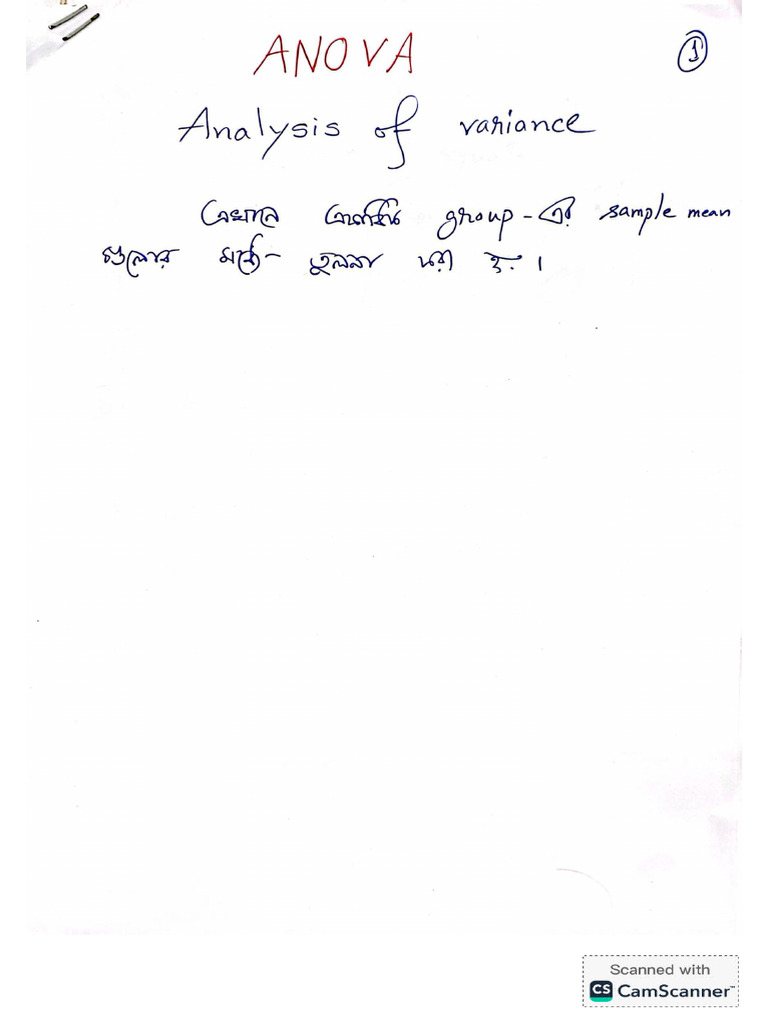 ANOVA
1
Analysis of variance
এখানে একাধিক group-এর sample mean
গুলোর মধ্যে- তুলনা করা হয়।
Scanned with
CS CamScanner™